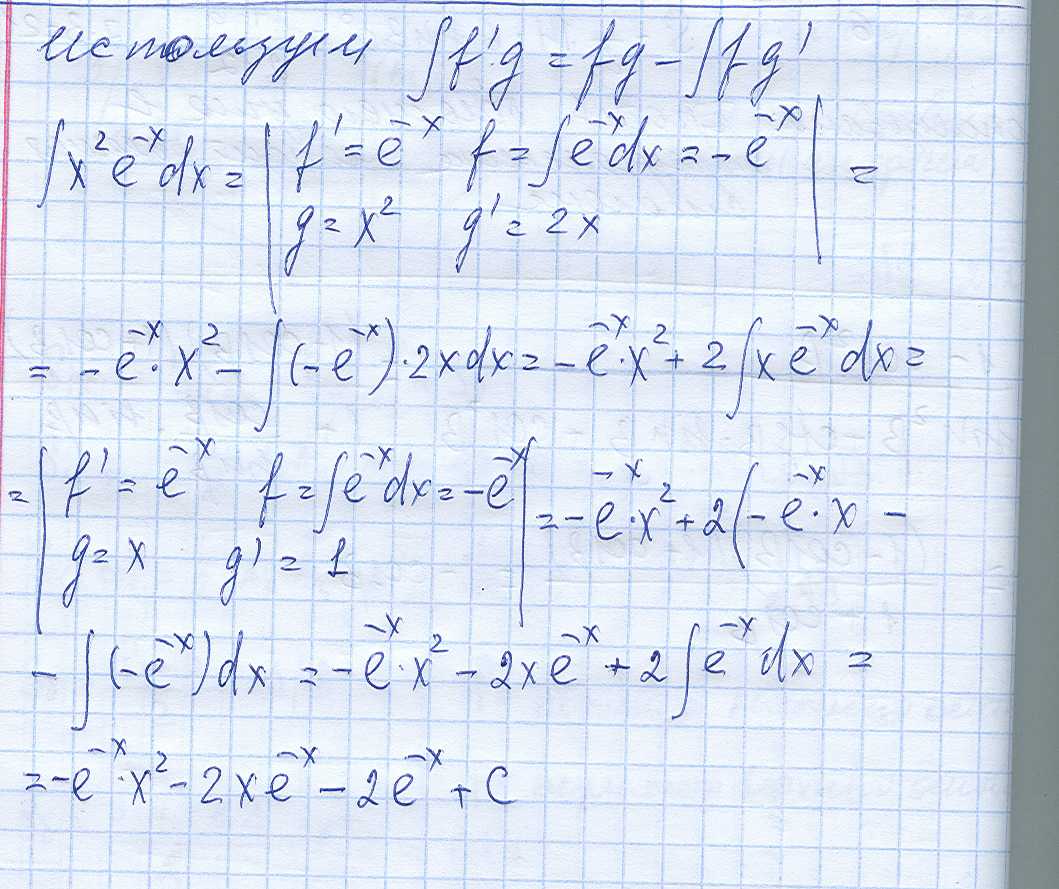 используем ∫f'g = fg − ∫fg'
∫x²e⁻ˣdx = | f' = e⁻ˣ f = ∫e⁻ˣdx = −e⁻ˣ | =
g = x² g' = 2x
= −e⁻ˣ·x² − ∫(−e⁻ˣ)·2xdx = −e⁻ˣ·x² + 2∫xe⁻ˣdx =
= | f' = e⁻ˣ f = ∫e⁻ˣdx = −e⁻ˣ | = −e⁻ˣ·x² + 2(−e⁻ˣ·x −
g = x g' = 1
− ∫(−e⁻ˣ)dx = −e⁻ˣ·x² − 2xe⁻ˣ + 2∫e⁻ˣdx =
= −e⁻ˣ·x² − 2xe⁻ˣ − 2e⁻ˣ + C